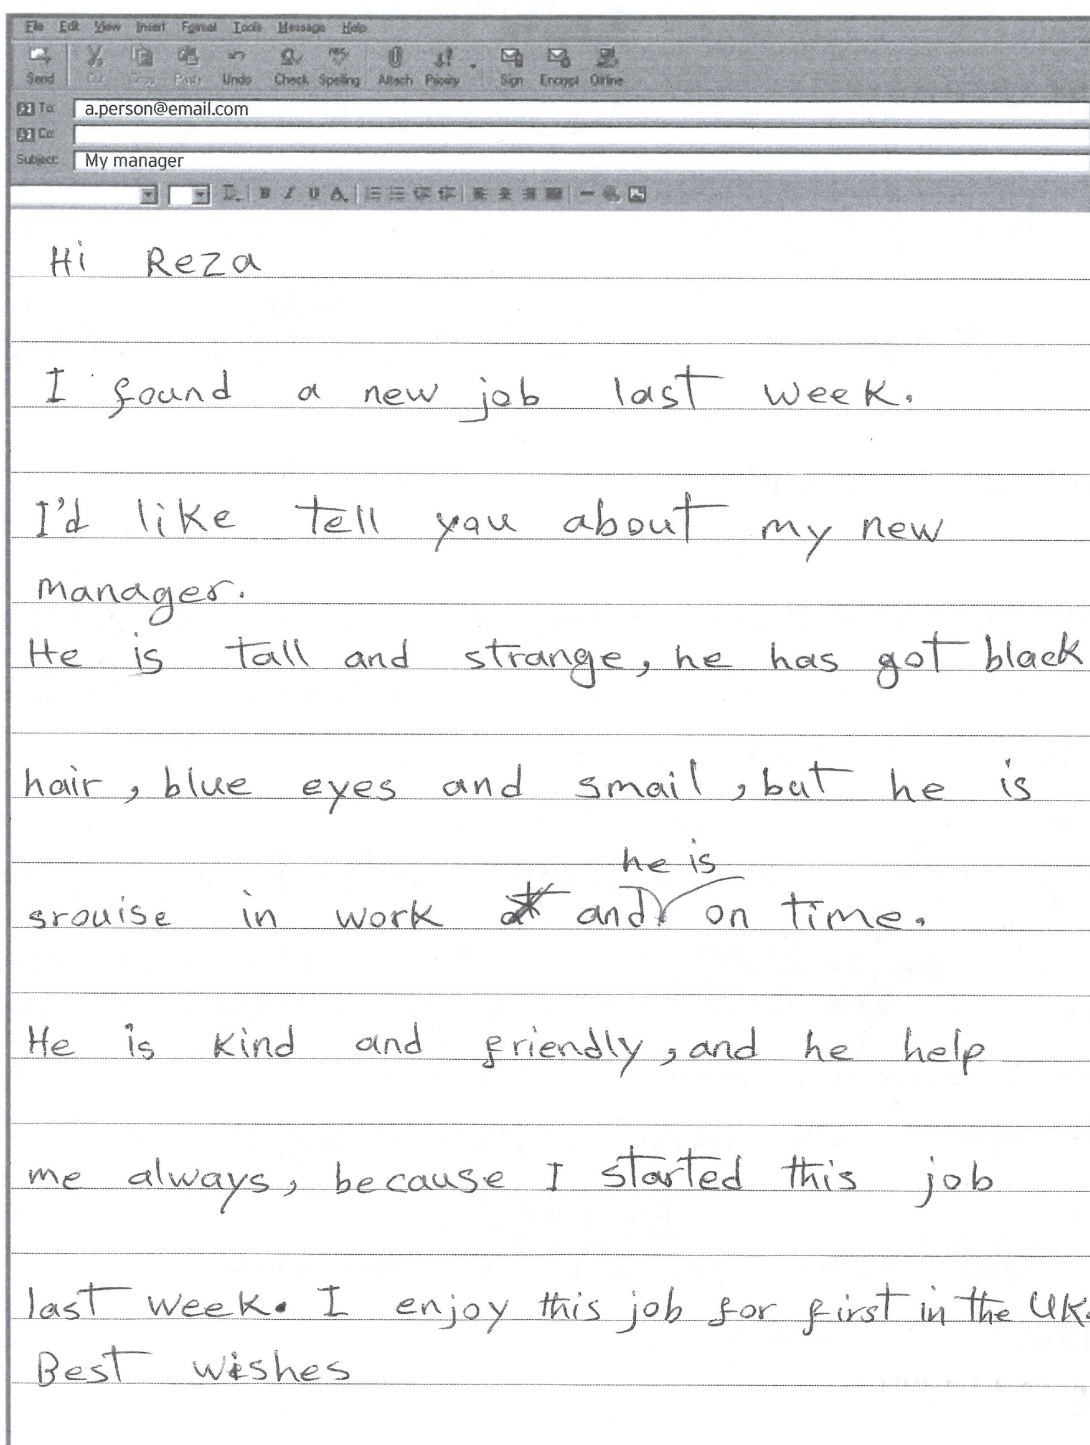 File Edit View Insert Format Tools Message Help
Send Cut Copy Paste Undo Check Spelling Attach Priority Sign Encrypt Offline
To: a.person@email.com
Cc:
Subject: My manager
Hi Reza
I found a new job last week.
I'd like tell you about my new
manager.
He is tall and strange, he has got black
hair, blue eyes and smail, but he is
he is
srouise in work and on time.
He is kind and friendly, and he help
me always, because I started this job
last week. I enjoy this job for first in the UK.
Best wishes